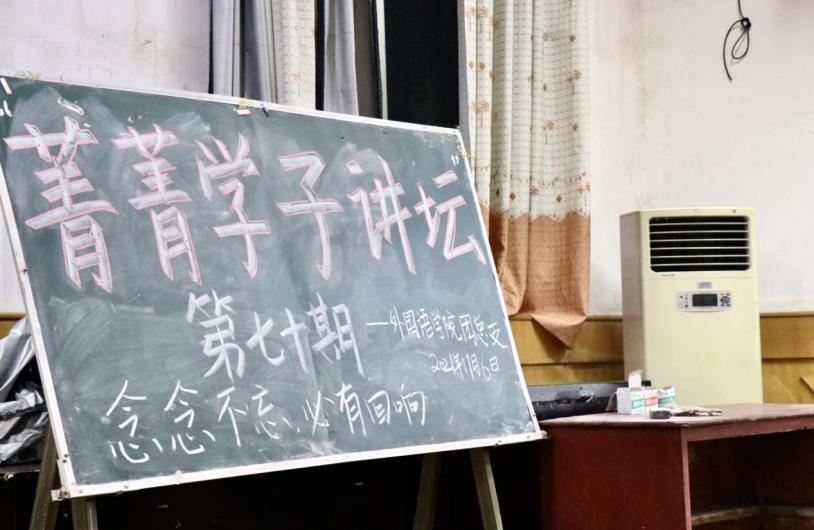 “菁菁学子讲坛”
第七十期
—外国语学院团总支
2021年11月6日
念念不忘,必有回响